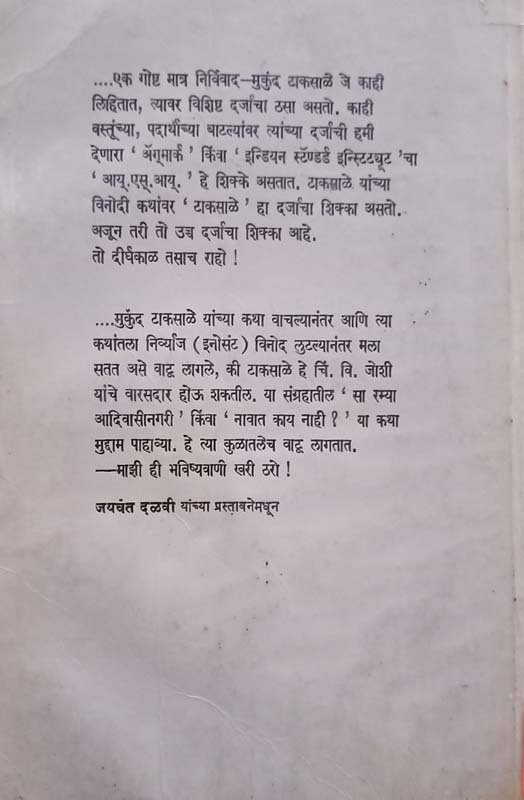 ....एक गोष्ट मात्र निर्विवाद—मुकुंद टाकसाळे जे काही
लिहितात, त्यावर विशिष्ट दर्जाचा ठसा असतो. काही
वस्तूंच्या, पदार्थांच्या बाटल्यांवर त्यांच्या दर्जाची हमी
देणारा ‘ ॲग्मार्क’ किंवा ‘ इन्डियन स्टॅण्डर्ड इन्स्टिट्यूट ’चा
‘ आय्.एस्.आय्. ’ हे शिक्के असतात. टाकसाळे यांच्या
विनोदी कथांवर ‘ टाकसाळे ’ हा दर्जाचा शिक्का असतो.
अजून तरी तो उच्च दर्जाचा शिक्का आहे.
तो दीर्घकाळ तसाच राहो !
....मुकुंद टाकसाळे यांच्या कथा वाचल्यानंतर आणि त्या
कथांतला निर्व्याज (इनोसंट) विनोद लुटल्यानंतर मला
सतत असे वाटू लागले, की टाकसाळे हे चिं. वि. जोशी
यांचे वारसदार होऊ शकतील. या संग्रहातील ‘ सा रम्या
आदिवासीनगरी ’ किंवा ‘ नावात काय नाही ? ’ या कथा
मुद्दाम पाहाव्या. हे त्या कुळातलेच वाटू लागतात.
—माझी ही भविष्यवाणी खरी ठरो !
जयवंत दळवी यांच्या प्रस्तावनेमधून